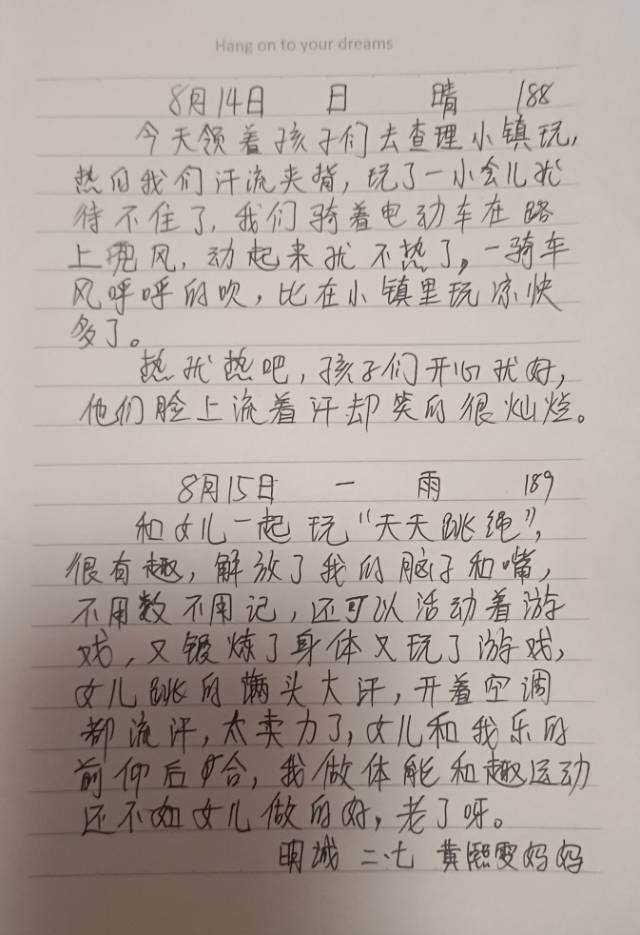 Hang on to your dreams
8月14日 日 晴 188
今天领着孩子们去查理小镇玩,
热的我们汗流夹背,玩了一小会儿就
待不住了,我们骑着电动车在路
上兜风,动起来就不热了,一骑车
风呼呼的吹,比在小镇里玩凉快
多了。
热就热吧,孩子们开心就好,
他们脸上流着汗却笑的很灿烂。
8月15日 一 雨 189
和女儿一起玩“天天跳绳”,
很有趣,解放了我的脑子和嘴,
不用数不用记,还可以活动着游
戏,又锻炼了身体又玩了游戏,
女儿跳的满头大汗,开着空调
都流汗,太卖力了,女儿和我乐的
前仰后合,我做体能和趣运动
还不如女儿做的好,老了呀。
明城 二.七 黄熙雯妈妈